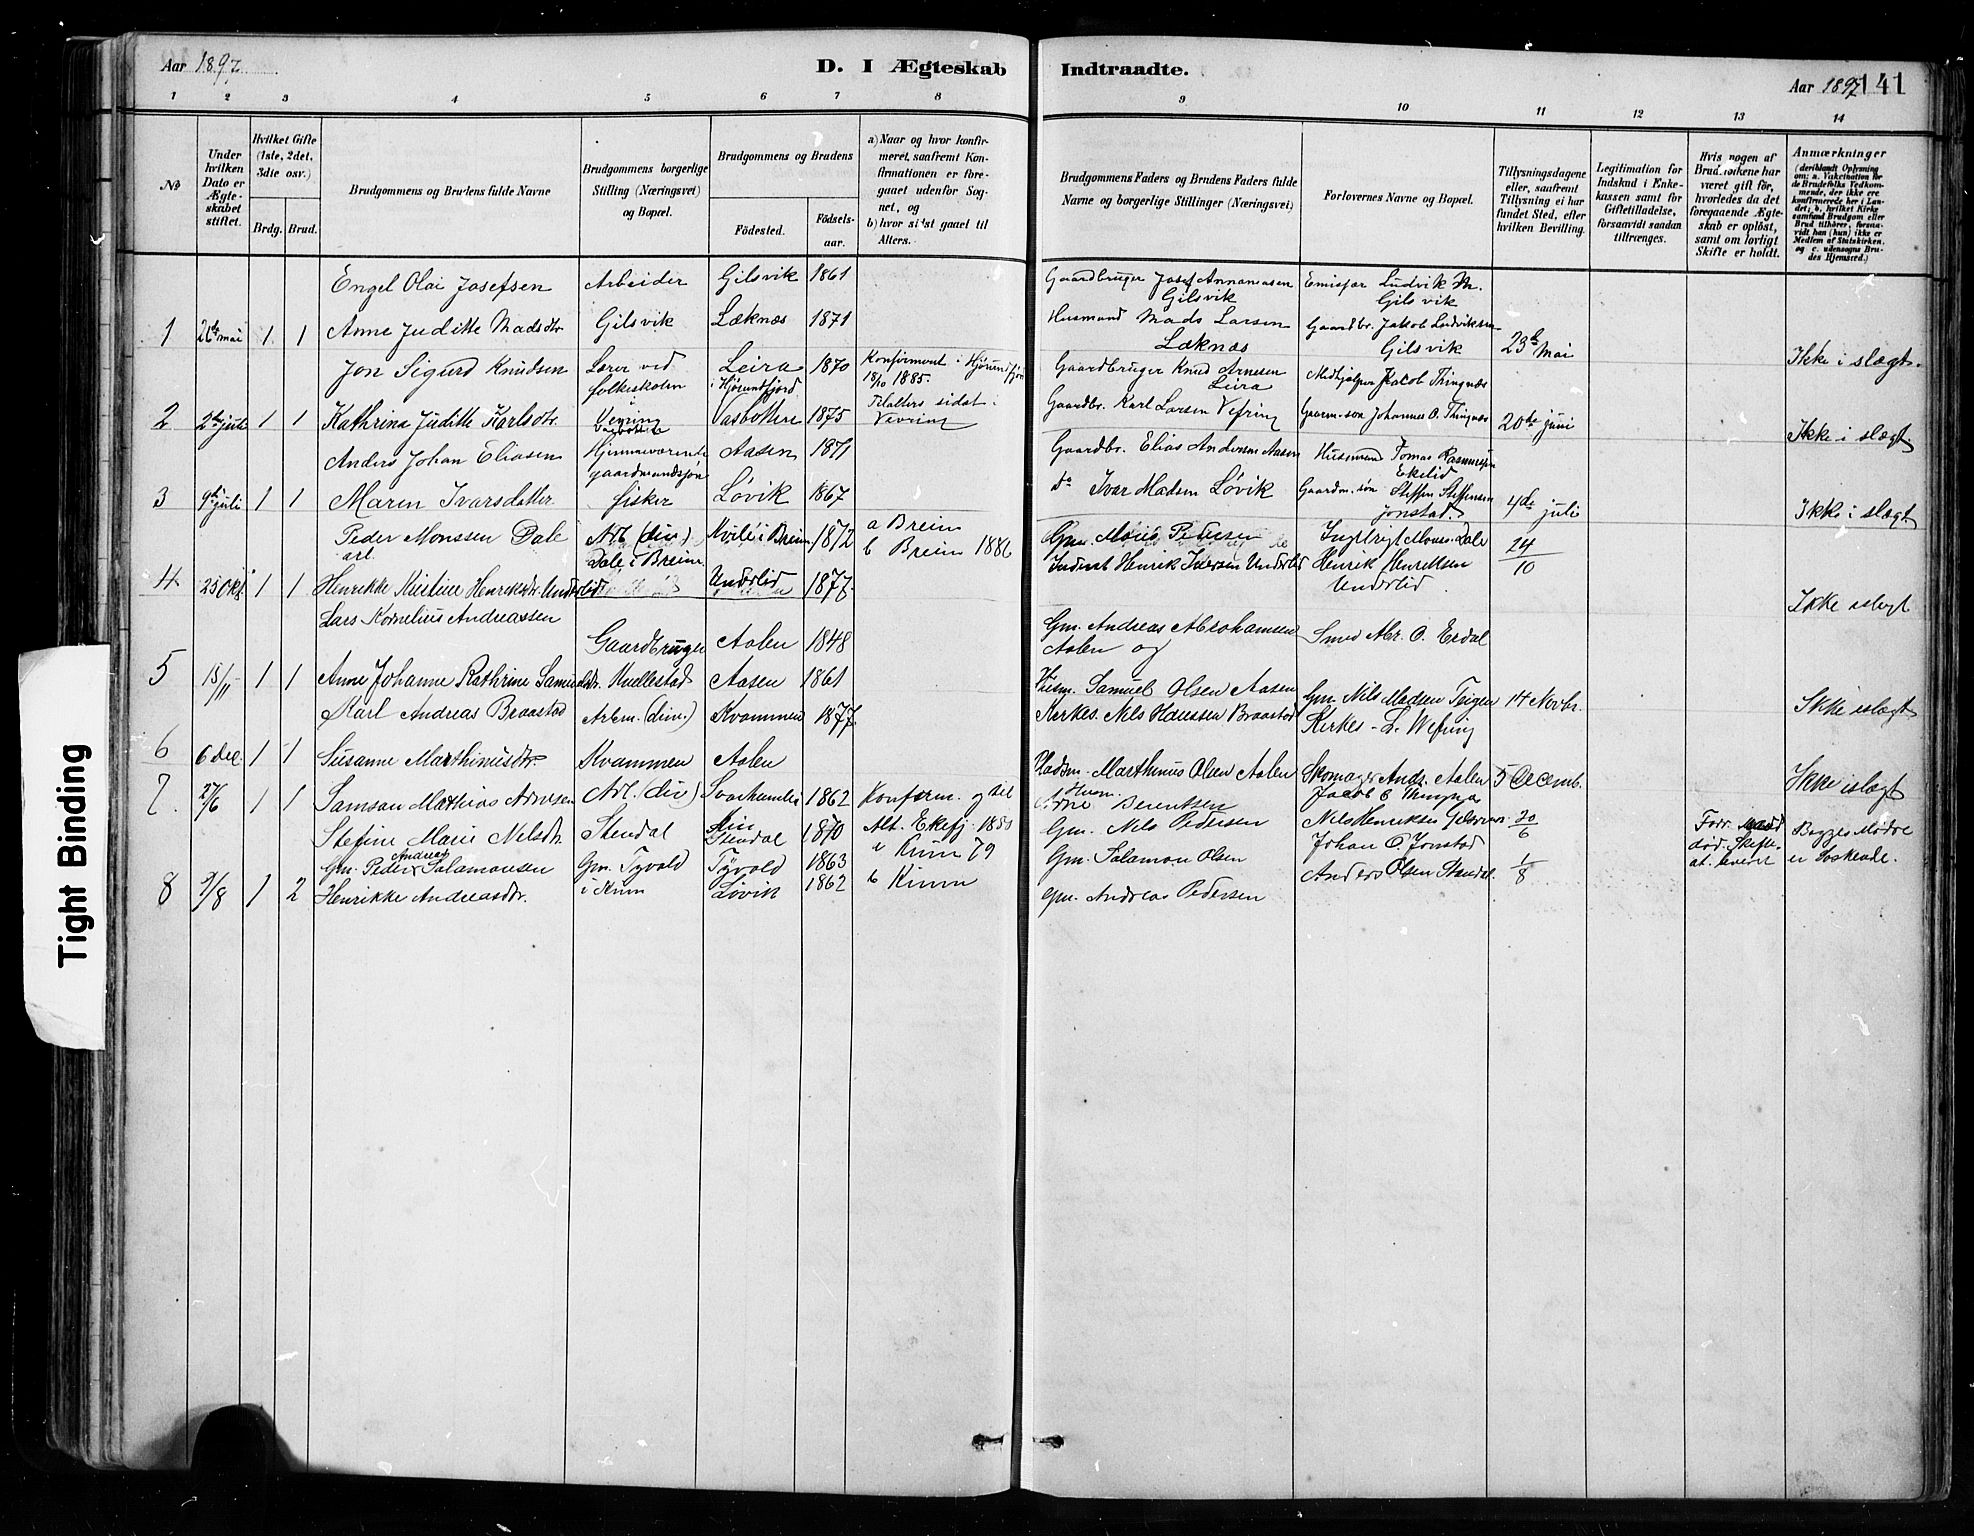 Aar 1897
D. I Ægteskab
Indtraadte.
Aar 1897
141
1 2 3 4 5 6 7 8
9 10 11 12 13 14
No
Under hvilken Dato er Ægteskabet stiftet.
Hvilket Gifte (1ste, 2det, 3die osv.)
Brdg. Brud.
Brudgommens og Brudens fulde Navne
Brudgommens borgerlige Stilling (Næringsvei) og Bopæl.
Brudgommens og Brudens
Fødested.
Fødsels-aar.
a) Naar og hvor konfirmeret, saafremt Konfirmationen er foregaaet udenfor Sognet, og
b) hvor sidst gaaet til Alters.
Brudgommens Faders og Brudens Faders fulde Navne og borgerlige Stillinger (Næringsvei)
Forlovernes Navne og Bopæl.
Tillysningsdagene eller, saafremt Tillysning ei har fundet Sted, efter hvilken Bevilling.
Legitimation for Indskud i Enkekassen samt for Giftetilladelse, forsaavidt saadan tiltrænges.
Hvis nogen af Brudefolkene har været gift før, hvorledes da det foregaaende Ægteskab er opløst, samt om lovligt Skifte er holdt.
Anmærkninger
(deriblandt Oplysning om: a. Vakcination for de Brudefolks Vedkommende, der ikke ere konfirmerede her i Landet; b. hvilket Kirkesamfund Brudgom eller Brud tilhører, forsaavidt han (hun) ikke er Medlem af Statskirken, og c. udensogns Brudes Hjemsted.)
Engel Olai Josefsen Arbeider Gilsvik 1861 Gaardbruger Josef Annaniasen Gilsvik Emisær Ludvik M. Gilsvik
1 26de mai 1 1 Anne Juditte Madsdtr Gilsvik Læknæs 1871 Husmand Mads Larsen Læknæs Gaardbr. Jakob Ludviksen Gilsvik 23de Mai Ikke i slægt.
Jon Sigurd Knudsen Lærer ved folkeskolen Leira i Hjørundfjord 1870 Konfirmert i Hjørundfjord 18/10 1885. Gaardbruger Knud Arnesen Leira Medhjælper Jacob Thingnæs
2 2de juli 1 1 Kathrina Juditte Karlsdtr. Vevring Vasbotten 1875 Tilalters sidst i Vevring Gaardbr. Karl Larsen Vefring Gaarm. søn Johannes O. Thingnæs 20de juni Ikke i slægt
Anders Johan Eliasen Hjemmeværende gaardmandssøn Aasen 1871 Gaardbr. Elias Andersen Aasen Husmand Tomas Rasmussen Ekelid
3 9de juli 1 1 Maren Ivarsdatter fisker Løvik 1867 do Ivar Madsen Løvik Gaardm. søn Steffen Steffensen Jonstad. 4de juli Ikke i slægt
Peder Monssen Dale Arb (div) Dale i Breim Kvile i Breim 1872 a Breim b Breim 1886 Gm. Mons Pedersen Ingebrigt Mons. Dale
4 25 Okt 1 1 Henrikke Kristine Henriksdtr. Underlid Underlid 1877. Inderst Henrik Iversen Underlid Henrik Henriksen Underlid 24/10 Ikke islægt
Lars Kornelius Andreassen Gaardbruger Aalen 1848 Gm. Andreas Abrahamsen Aalen og Smed Abr. O. Erdal
5 15/11 1 1 Anne Johanne Kathrine Samuelsdtr. Kvellestad Aasen 1861 Husm. Samuel Olsen Aasen Gm. Nils Madsen Teigen 14 Novbr. Ikke islægt
Karl Andreas Braastad Arbm. (div.) Kvammen 1877. Kirkes. Nils Hanssen Braastad Kirkes. L. Wefring
6 6 Dec. 1 1 Susanne Marthinusdtr. Kvammen Aalen Pladsm. Marthinus Olsen Aalen Skomager Andr. Aalen 5 Decemb. Ikke islægt
7. 27/6 1 1 Samson Mathias Arnesen Arb. (div) Svarhamlen 1862 Konfirm. og til Husm. Arne Berentsen Jacob C Thingnæs
Stefine Marie Nelsdtr. Stendal Stendal 1870 Alt. Ekefj. 1880 Gm. Nils Pedersen Nils Henriksen 20/6 Begges Mødre er Søskende.
Gm. Peder Andreas Salamonsen Gm. Tyvold i Kinn Tyvold 1863 a Kinn 79 Gm. Salamon Olsen Johan O. Jonstad
8 7/8 1 2 Henrikke Andreasdtr. Løvik 1862 b Kinn Gm. Andreas Pedersen Anders Olsen Standal. 1/8 Forr. Mand død. Skifteat. leveret